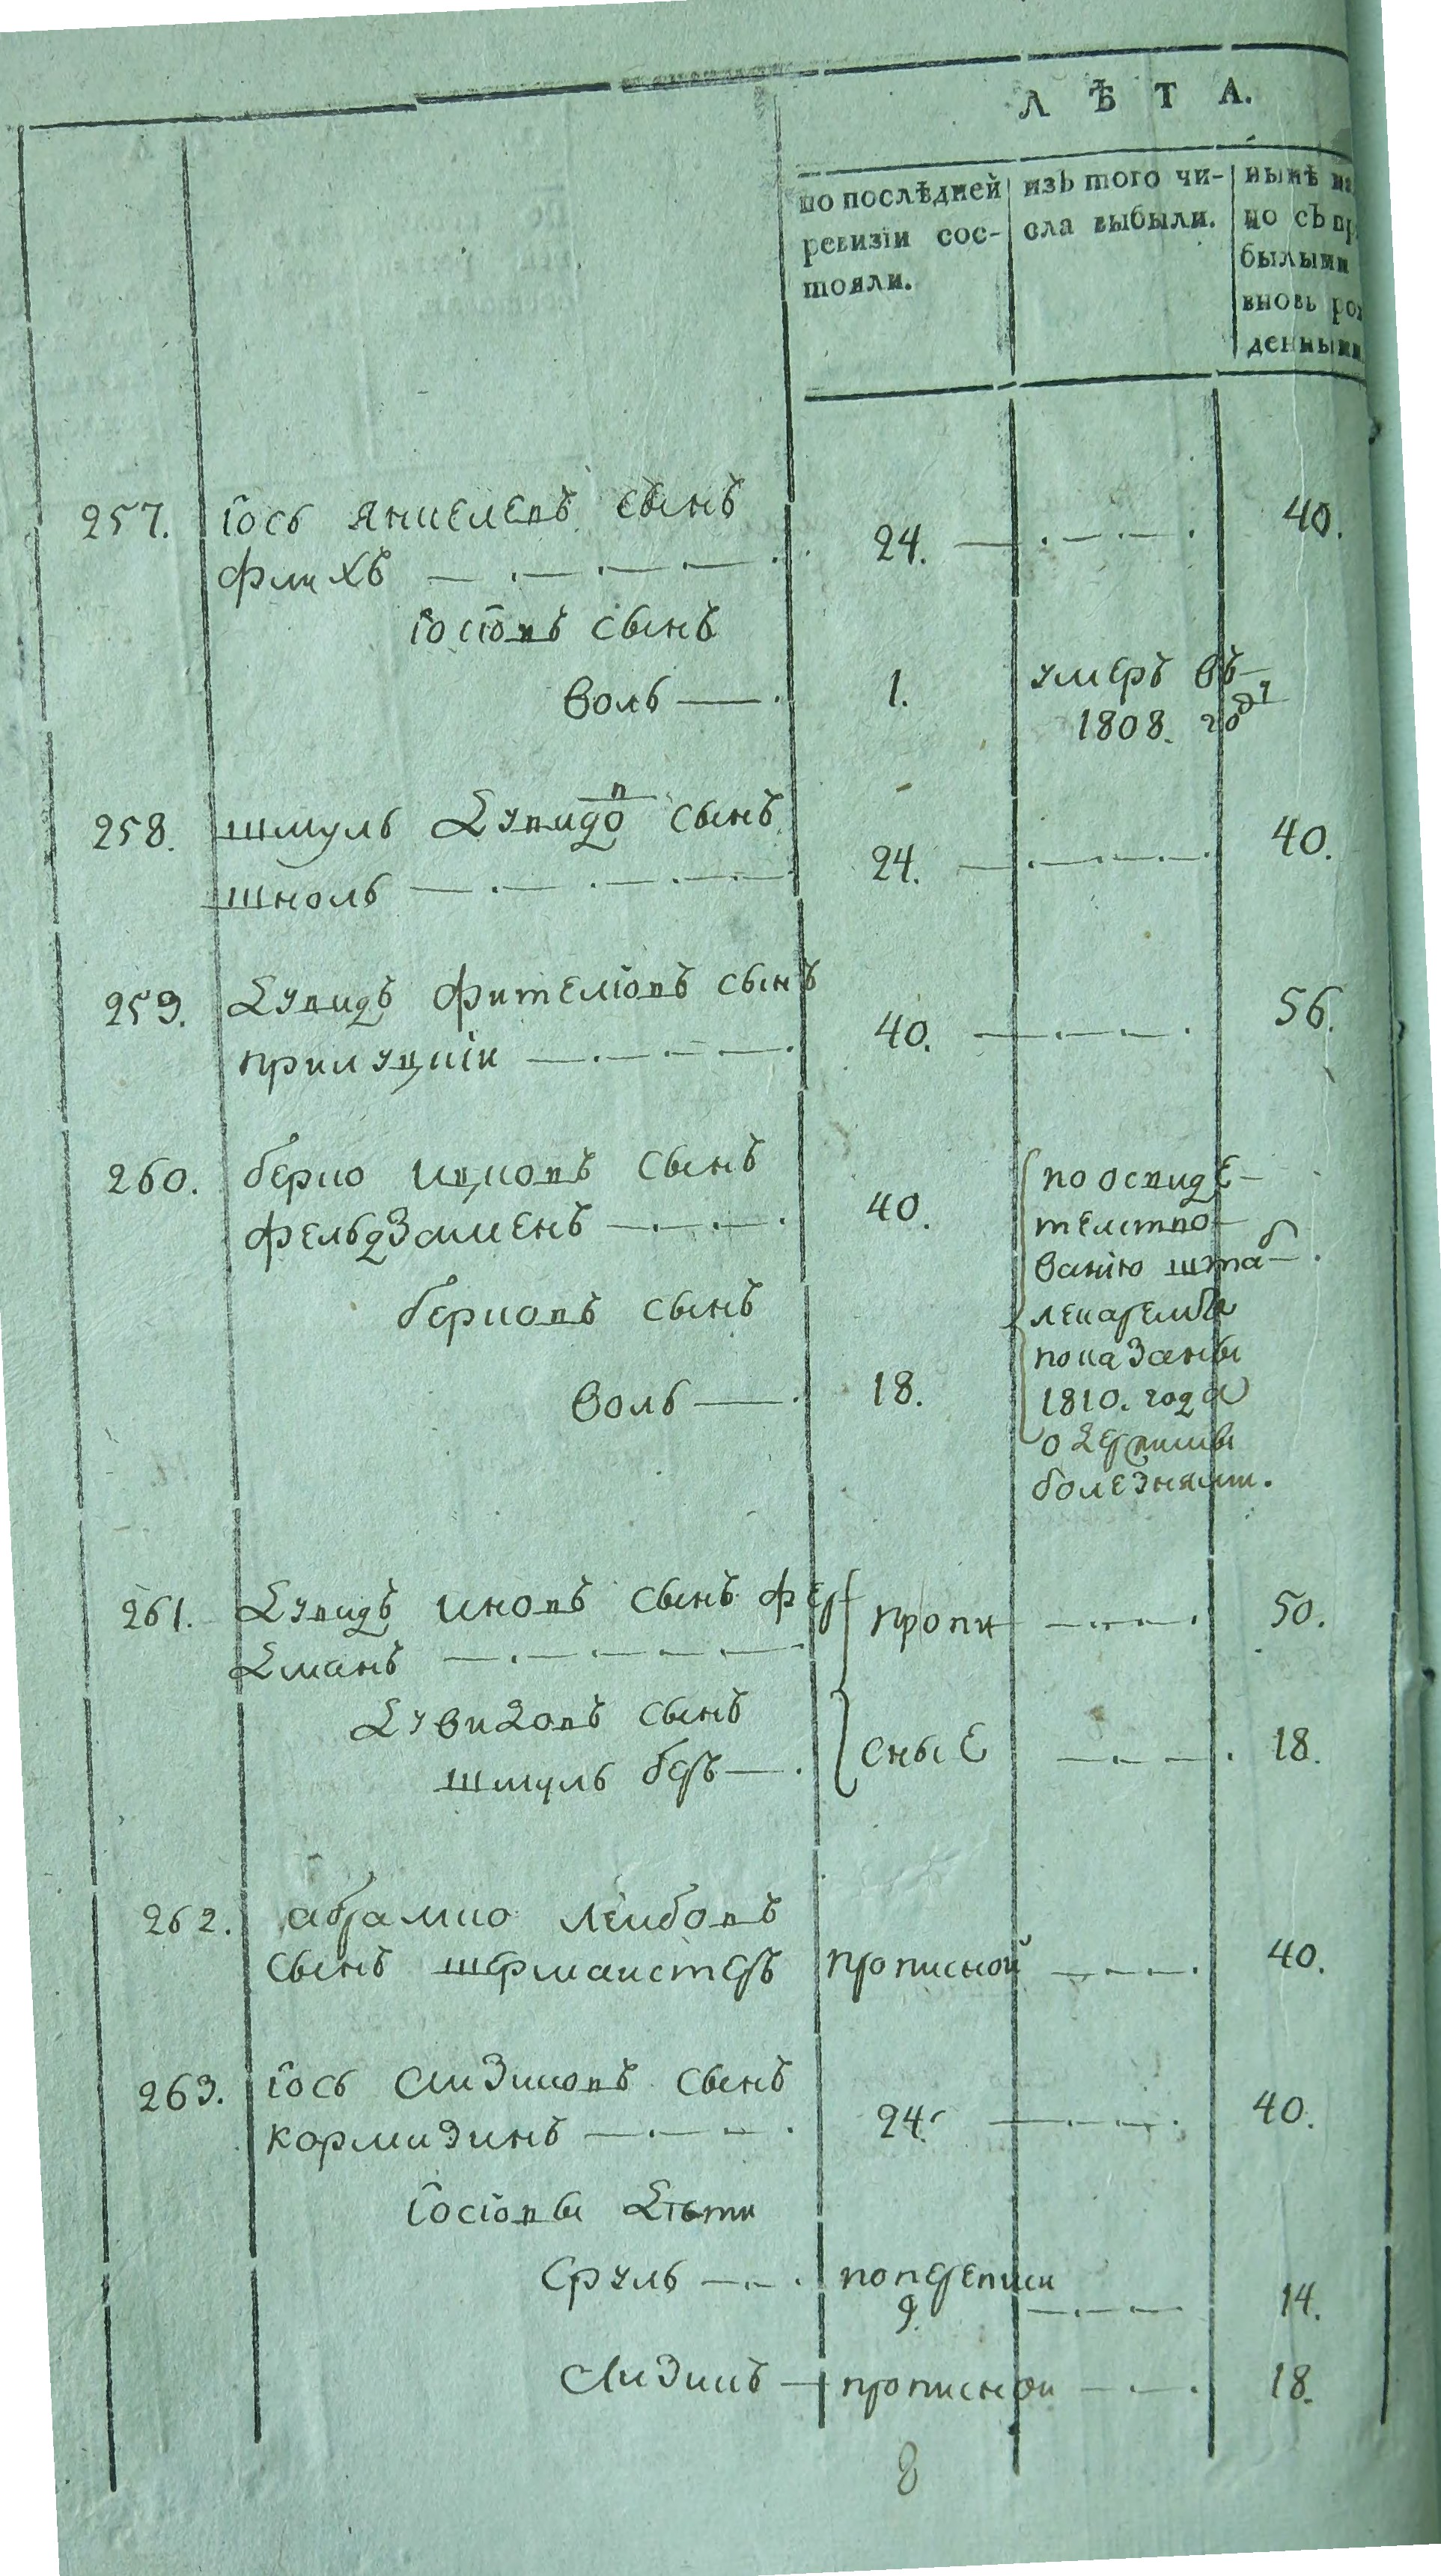 ЛѢТА.
по послѣдней
ревизіи сос-
тояли.
изъ того чи-
сла выбыли.
нынѣ на
по съ пр
былыми
вновь рож
денными
257. Іось Янкелевъ сынъ
Фликъ 24. 40.
Іосіовъ сынъ
Воль 1. умеръ въ
1808. году
258. Шмуль Дувидов сынъ
Школь 24. 40.
259. Дувидъ Фителіовъ сынъ
Прилуцкій 40. 56.
260. Берко Ицковъ сынъ
Фельдзаменъ 40.
Берковъ сынъ
Воль 18.
по освиде-
телство-
ванію штаб
лекаремъ
показаны
1810. года
одержимы
болезнями.
261. Дувидъ Иновъ сынъ Фер
Дманъ пропи 50.
Дувидовъ сынъ
Шмуль Беръ сные 18.
262. Абрамко Лейбовъ
сынъ Шермаистеръ прописной 40.
263. Іось Аизиковъ сынъ
Кормизинъ 24. 40.
Іосіовы дѣти
Сруль по переписи
9. 14.
Аизикъ прописной 18.
8